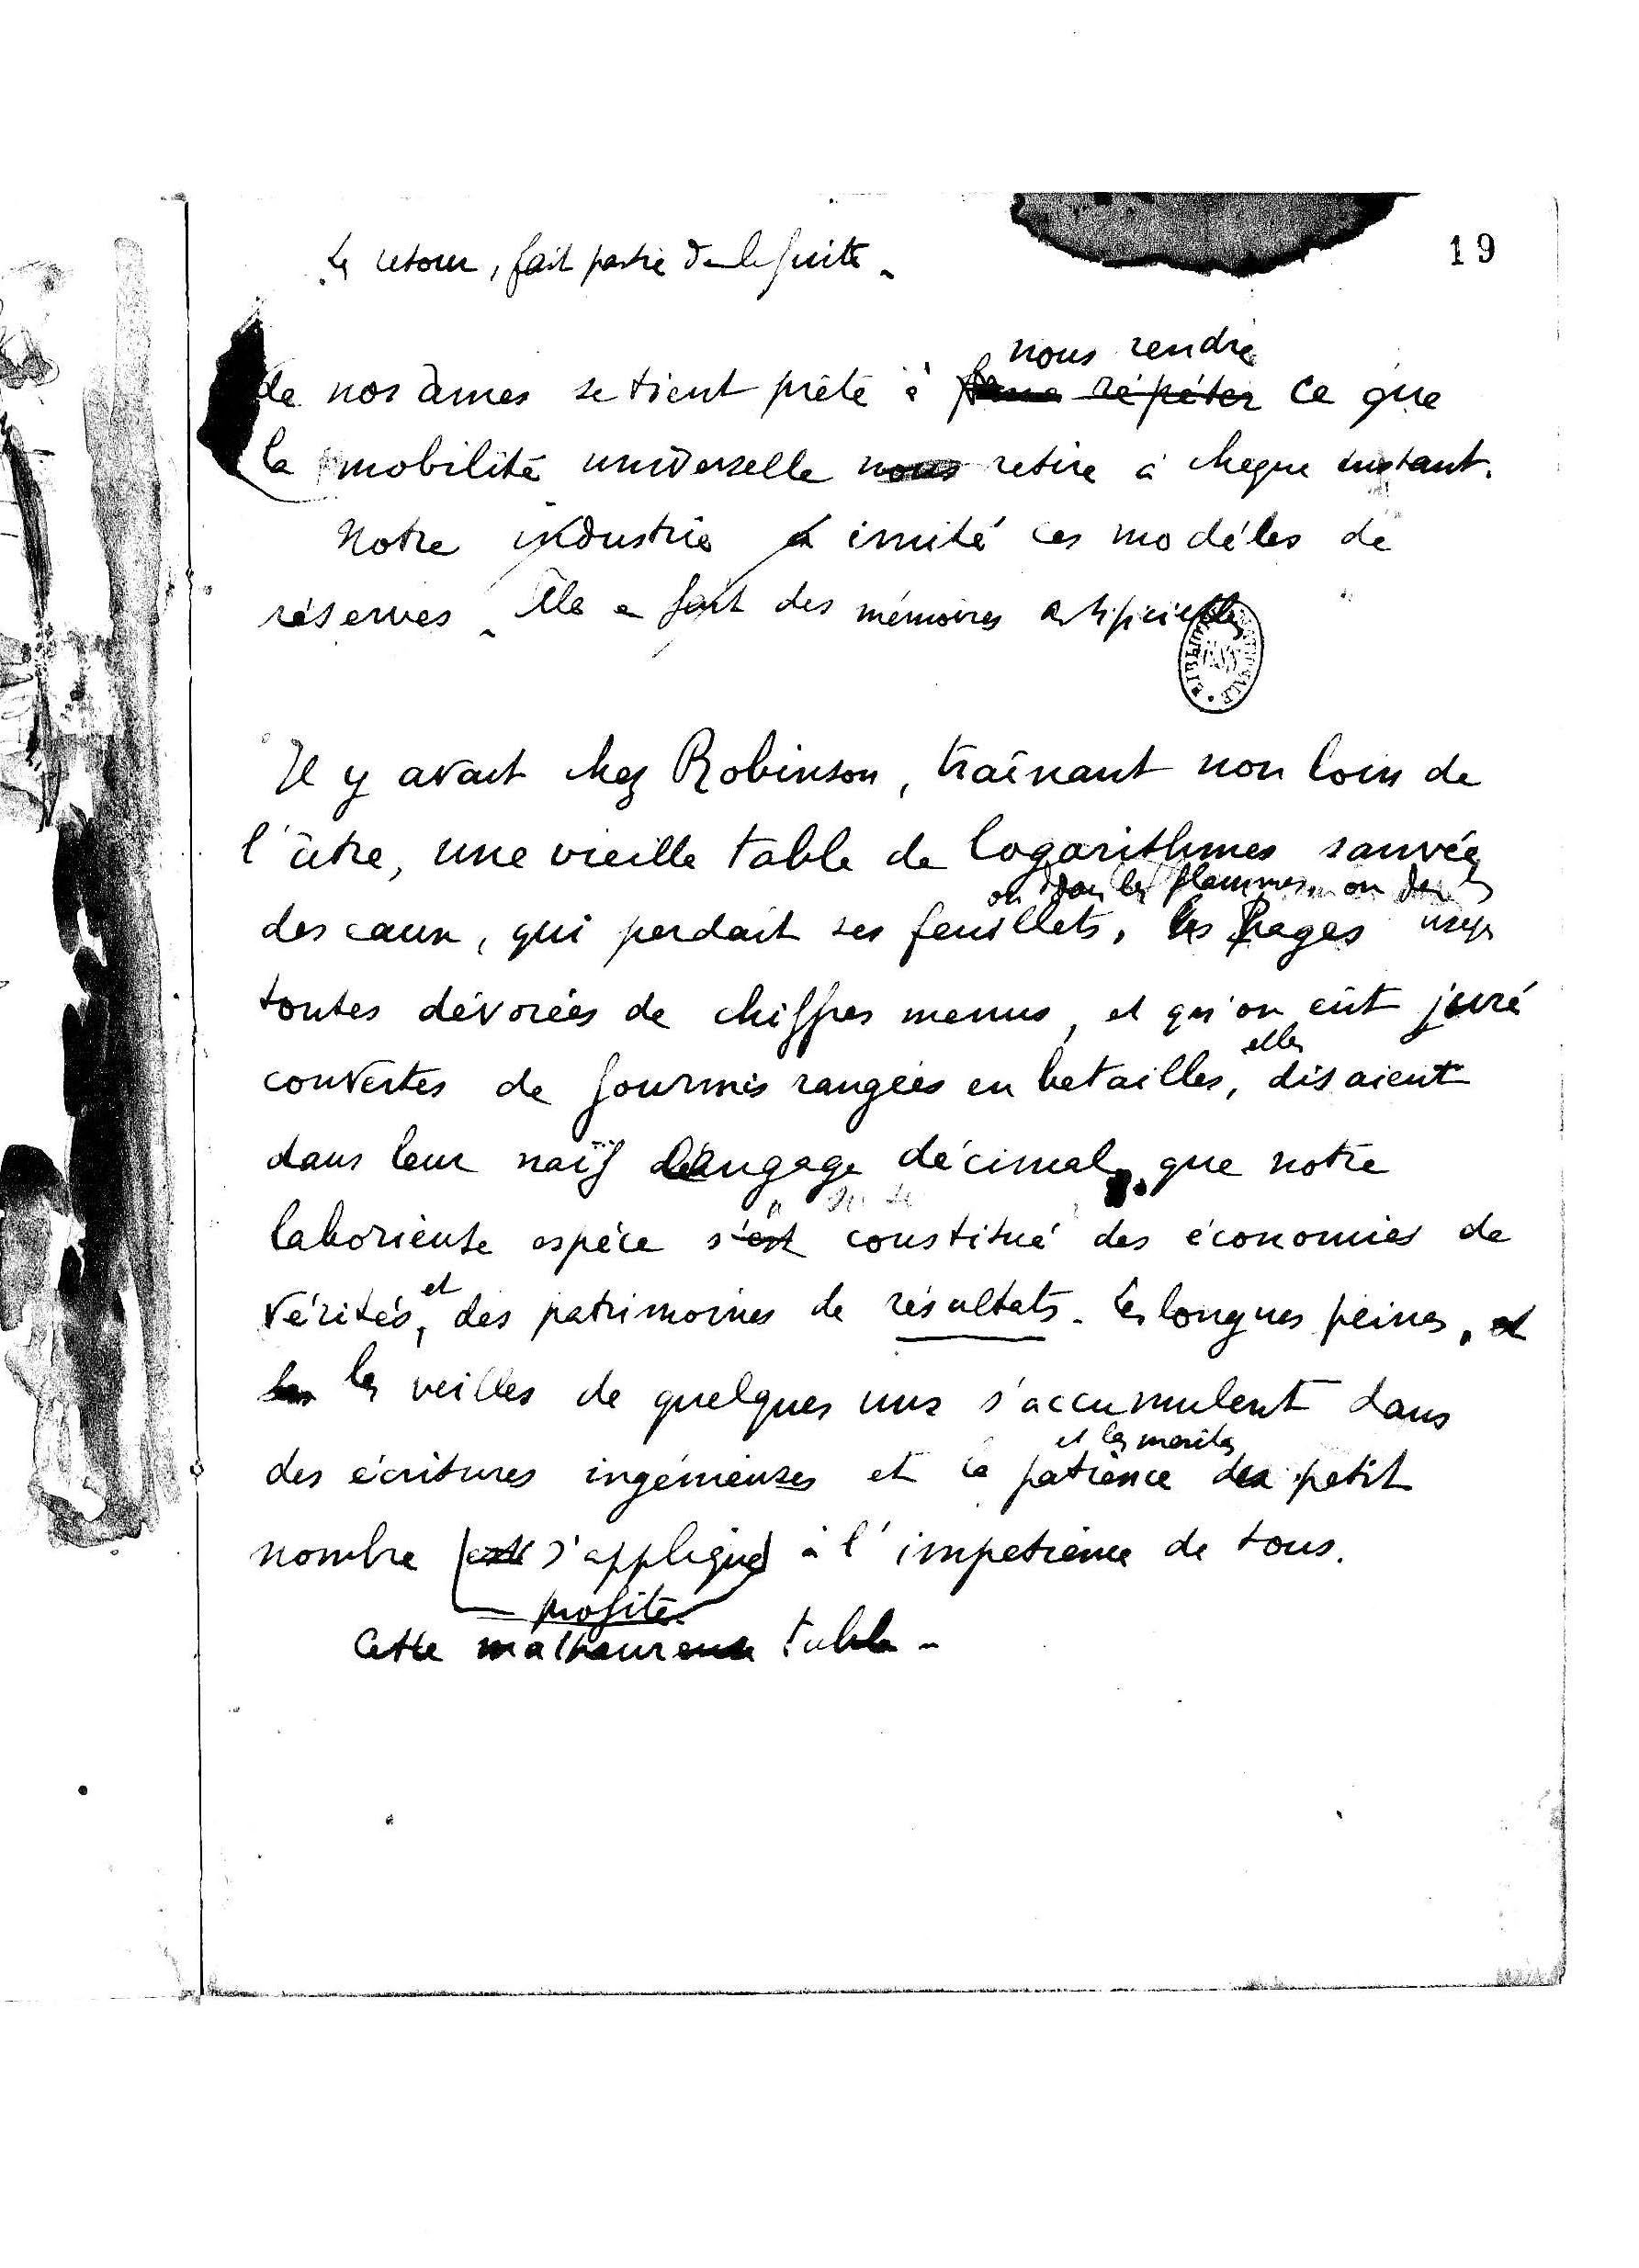 19
Le retour, fait partie de la fuite.
nous rendre
de nos âmes se tient prête à répéter ce que
la mobilité universelle nous retire à chaque instant.
Notre industrie a imité ces modèles de
réserves. Elle a fait des mémoires artificielles
Il y avait chez Robinson, traînant non loin de
l'âtre, une vieille table de logarithmes sauvée
des eaux, qui perdait ses feuillets,
ou dans les flammes, ou dans les
les pages
toutes dévorées de chiffres menus, et qu'on eût juré
elles
couvertes de fourmis rangées en batailles, disaient
dans leur naïf langage décimal, que notre
laborieuse espèce s'est constitué des économies de
et
vérités, des patrimoines de résultats. Les longues peines, et
les veilles de quelques uns s'accumulent dans
et les mérites
des écritures ingénieuses et la patience du petit
nombre s'applique à l'impatience de tous.
profite
Cette malheureuse table -